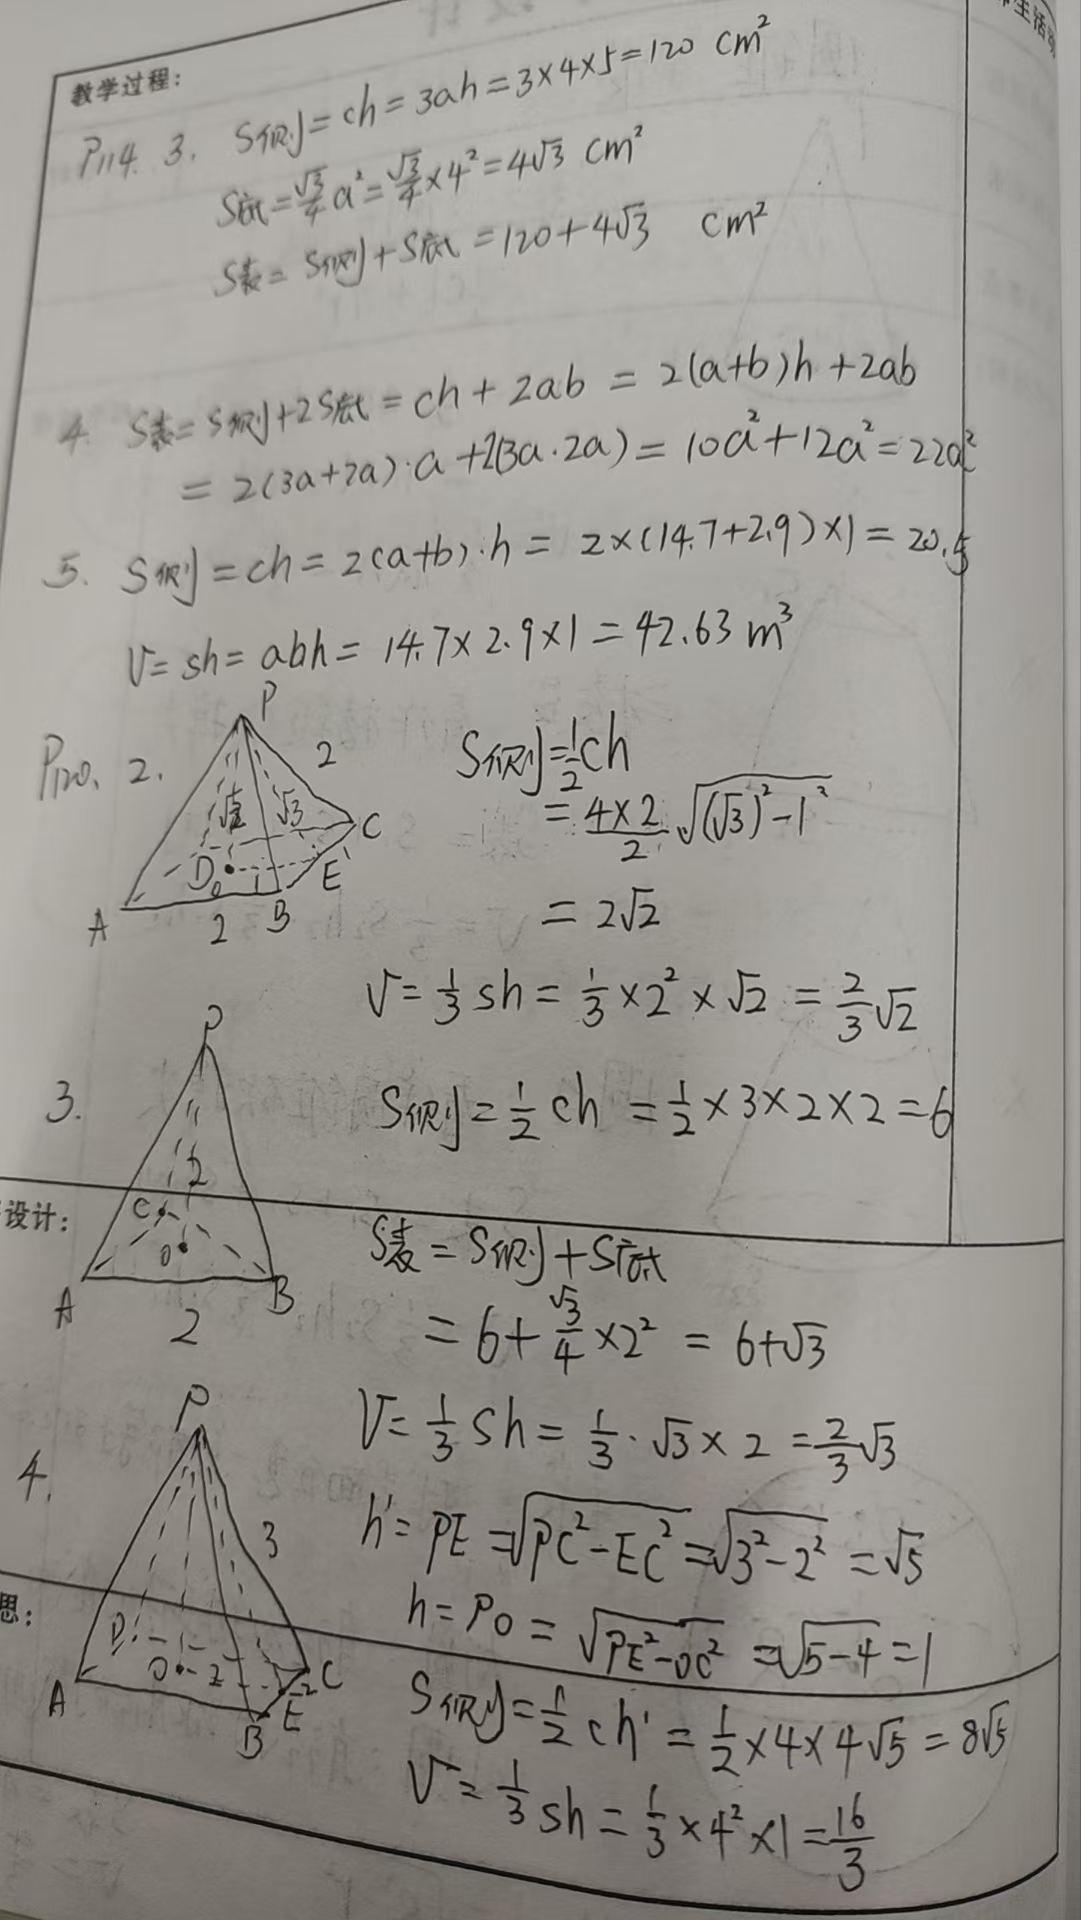 教学过程:
P114. 3. S侧=ch=3ah=3×4×5=120 cm²
S底=√3/4 a²=√3/4×4²=4√3 cm²
S表=S侧+S底=120+4√3 cm²
4. S表=S侧+2S底=ch+2ab=2(a+b)h+2ab
=2(3a+2a)·a+2(3a·2a)=10a²+12a²=22a²
5. S侧=ch=2(a+b)·h=2×(14.7+2.9)×1=20.5
V=sh=abh=14.7×2.9×1=42.63 m³
P120. 2.
P
2
√2
√3
A
D
O
1
B
E
C
2
S侧=1/2 ch
=4×2/2 √((√3)²-1²)
=2√2
V=1/3 sh=1/3×2²×√2=2/3√2
3.
P
2
C
O
A
B
2
S侧=1/2 ch=1/2×3×2×2=6
设计:
S表=S侧+S底
=6+√3/4×2²=6+√3
V=1/3 sh=1/3·√3×2=2/3√3
4.
P
3
D
O
2
2
A
B
E
C
h'=PE=√(PC²-EC²)=√(3²-2²)=√5
h=PO=√(PE²-OC²)=√(5-4)=1
思:
S侧=1/2 ch'=1/2×4×4√5=8√5
V=1/3 sh=1/3×4²×1=16/3